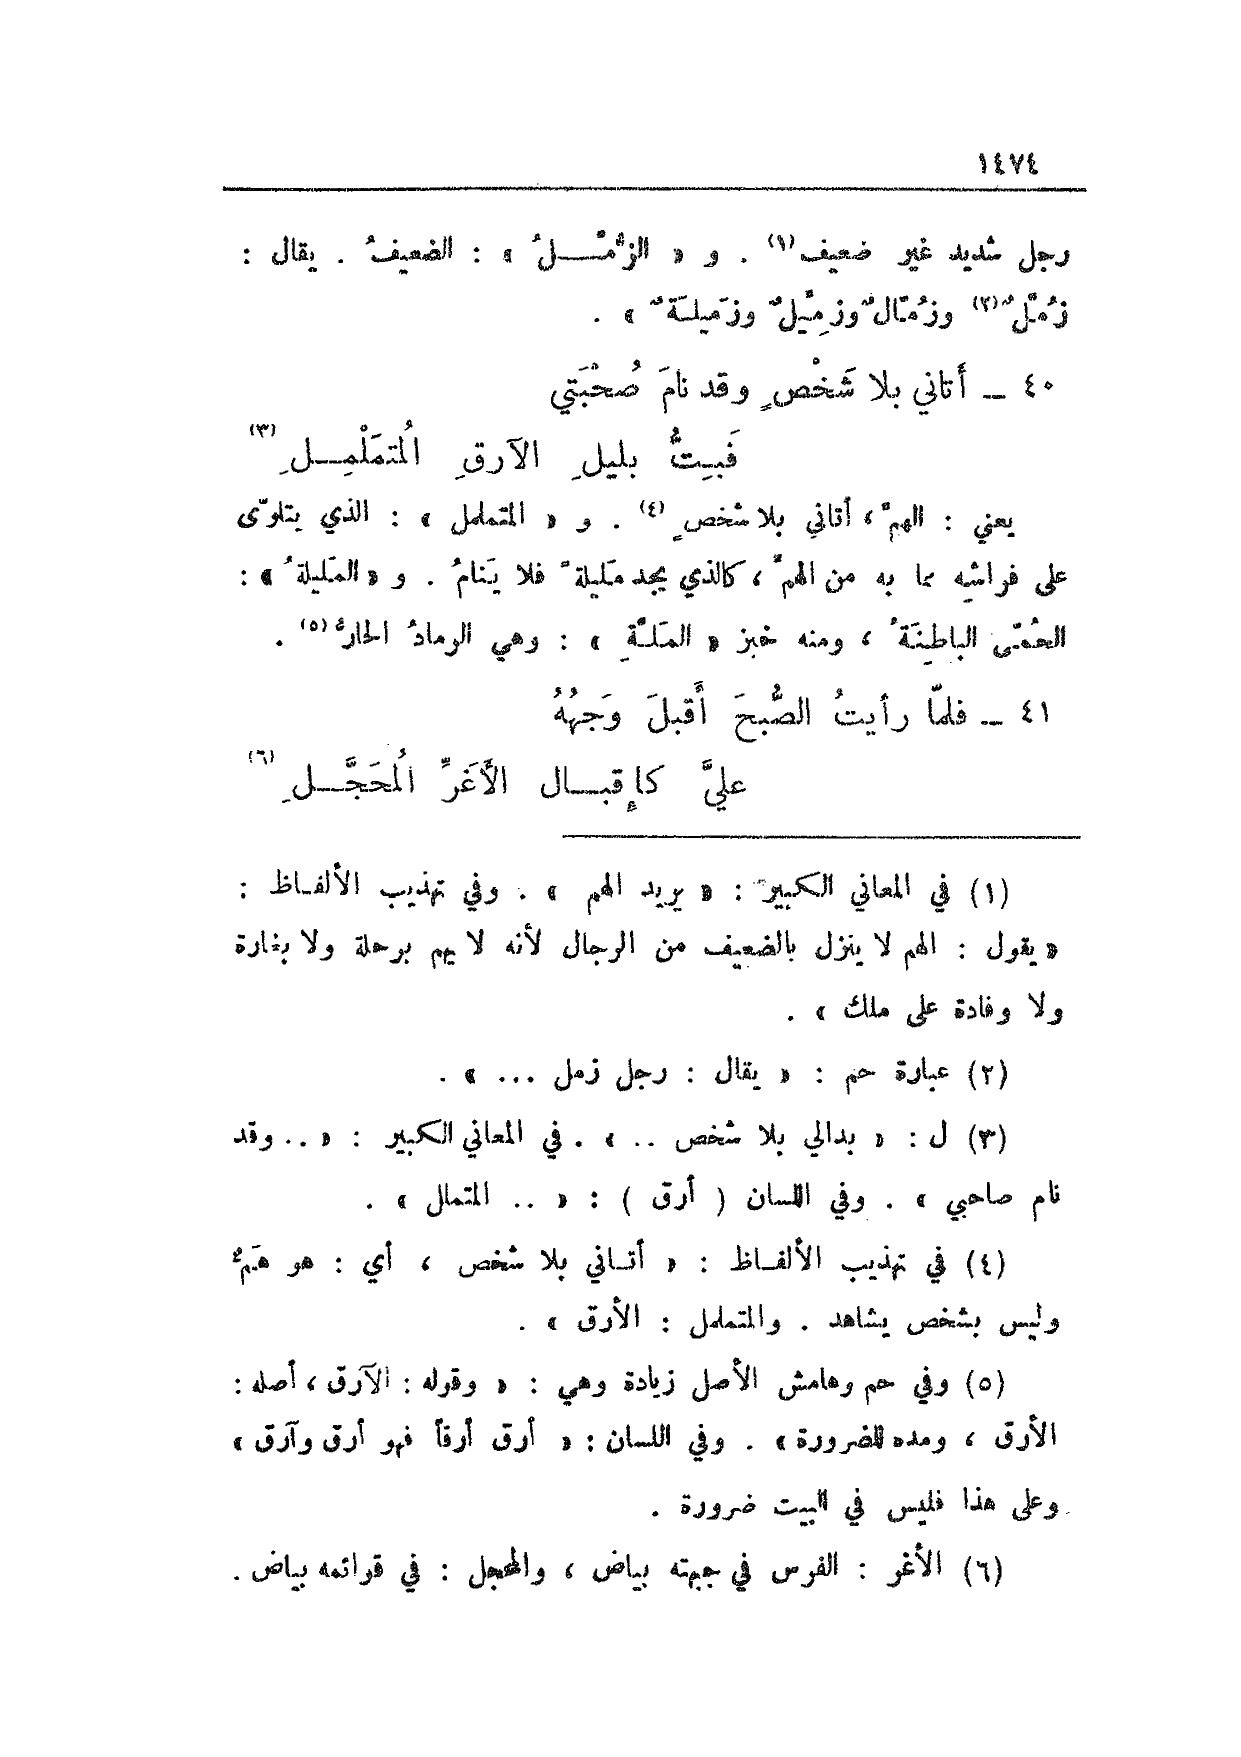 ١٤٧٤
رجل شديد غير ضعيف(١) . و « الزُّمَّـــلُ » : الضعيفُ . يقال :
زُمَّلٌ(٢) وزُمّالٌ وزِمِّيلٌ وزمّيلَةٌ » .
٤٠ ــ أَتاني بلا شَخْصٍ وقد نامَ صُحْبَتي
فَبِتُّ بليلِ الآرقِ المُتَمَلْمِـــلِ(٣)
يعني : الهمّ ، أتاني بلا شخصٍ(٤) . و « المتململ » : الذي يتلوّى
على فراشِه مما به من الهمّ ، كالذي يجد مَليلةً فلا يَنامُ . و « المَليلةُ » :
الحُمّى الباطِنَةُ ، ومنه خبز « المَلَّةِ » : وهي الرمادُ الحارُّ(٥) .
٤١ ــ فلمّا رأيتُ الصُّبحَ أَقبلَ وَجهُهُ
عليَّ كإِقبـــال الأَغَرِّ المُحَجَّـــلِ(٦)
(١) في المعاني الكبير : « يريد الهم » . وفي تهذيب الألفـاظ :
« يقول : الهم لا ينزل بالضعيف من الرجال لأنه لا يهم برحلة ولا بغارة
ولا وفادة على ملك » .
(٢) عبارة حم : « يقال : رجل زمل ... » .
(٣) ل : « بدالي بلا شخص .. » . في المعاني الكبير : « .. وقد
نام صاحبي » . وفي اللسان ( أرق ) : « .. المتمال » .
(٤) في تهذيب الألفـاظ : « أتـاني بلا شخص ، أي : هو هَمٌّ
وليس بشخص يشاهد . والمتململ : الأرق » .
(٥) وفي حم وهامش الأصل زيادة وهي : « وقوله : الآرق ، أصله :
الأرق ، ومده للضرورة » . وفي اللسان : « أرق أرقاً فهو أرق وآرق »
وعلى هذا فليس في البيت ضرورة .
(٦) الأغر : الفرس في جبهته بياض ، والمحجل : في قوائمه بياض .